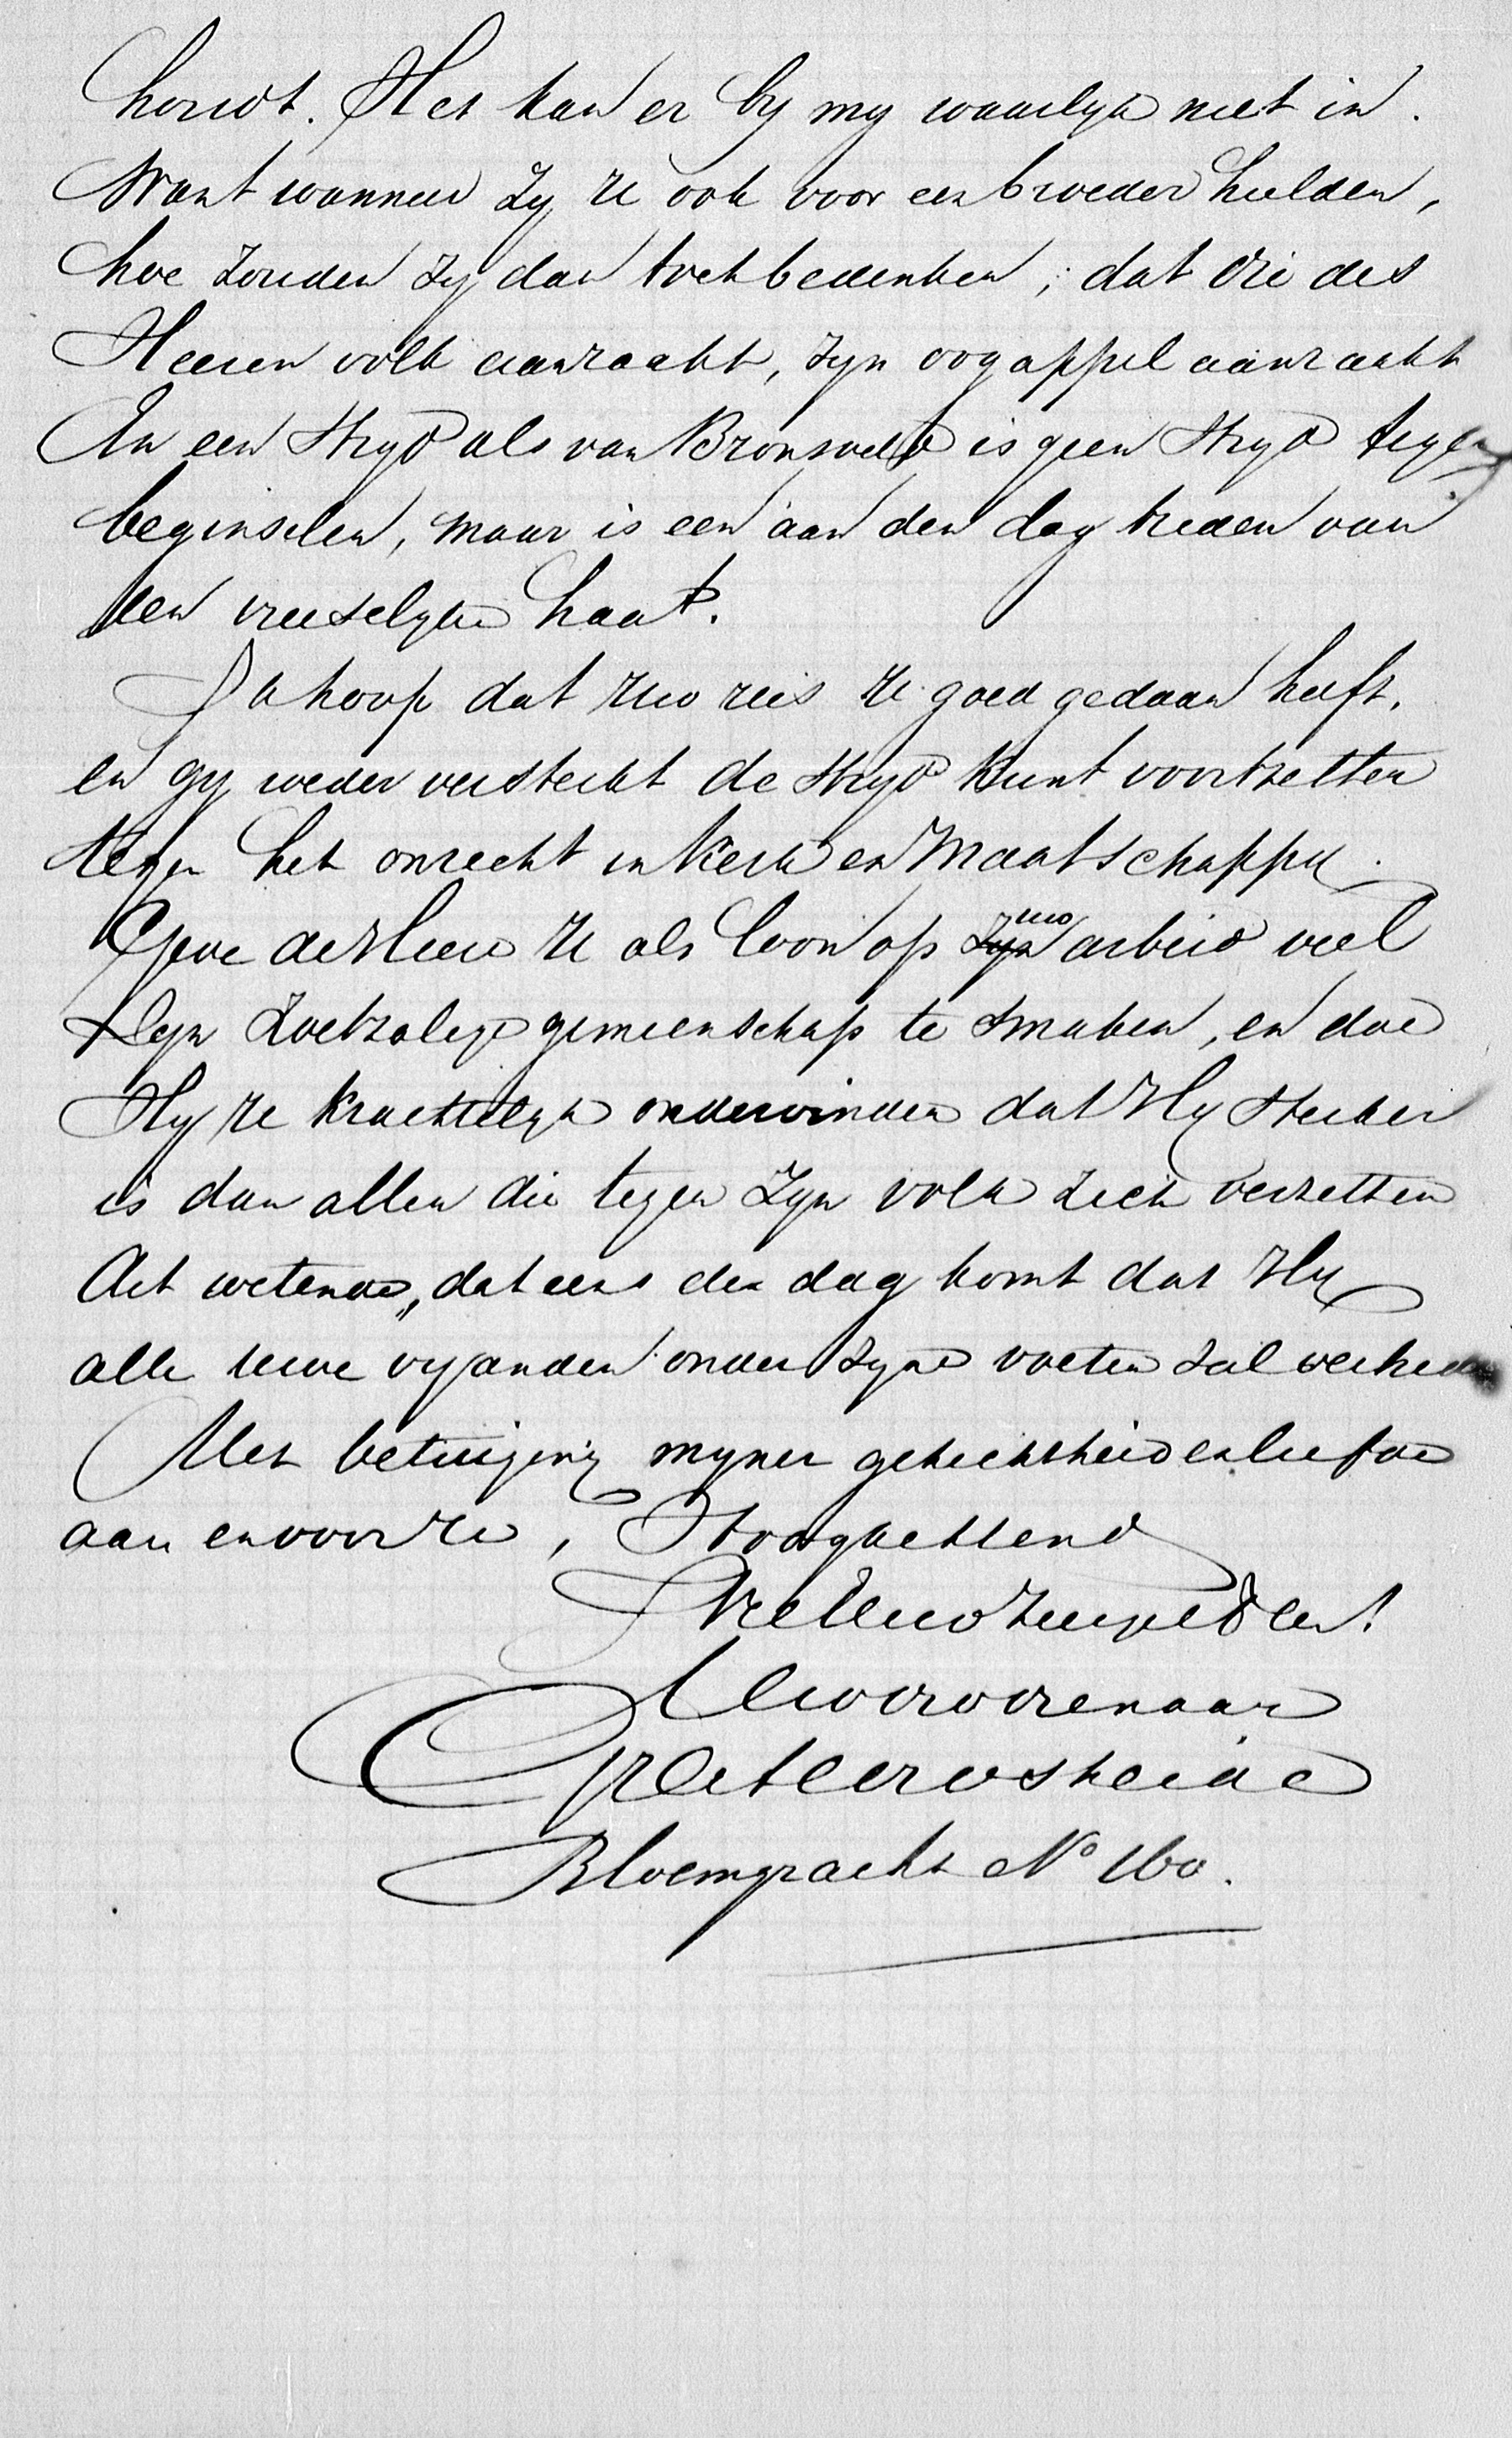 houdt. Het kan er by my waarlyk niet in.
Want wanneer zy U ook voor een broeder hielden,
hoe zouden zy dan toch bedenken, dat die des
Heeren volk aanraakt, zyn oogappel aanraakt
En een stryd als van Bronsveld is geen stryd tegen
beginselen, maar is een aan den dag treden van
een vreeselyke haat.
Ik hoop dat uw reis U goed gedaan heeft,
en gy weder versterkt de stryd kunt voortzetten
tegen het onrecht in kerk en Maatschappy.
Geve de Heere U als loon op zyn uw arbeid veel
zyn zoetzalige gemeenschap te smaken, en doe
Hy U krachtelyk ondervinden dat Hy sterker
is dan allen die tegen Zyn volk zich verzetten
wetende, dat eens den dag komt dat Hy
alle uwe vyanden onder zyne voeten zal werpen
Met betuiging myner gehechtheid en liefde
aan en voor U, Hoogachtend
UEd
Uw dienaar
Bloemgracht No 160.